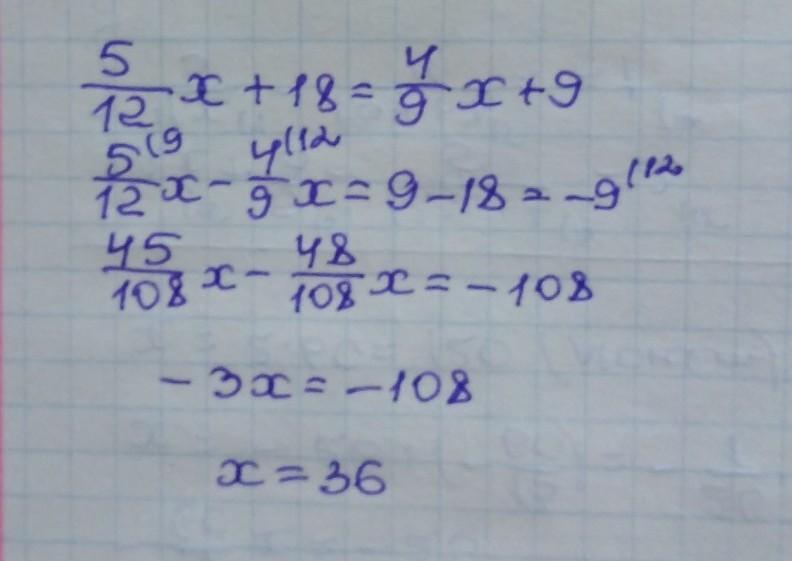 5/12 x + 18 = 4/9 x + 9
5/12 (9 x - 4/9 (12 x = 9 - 18 = -9 (12
45/108 x - 48/108 x = -108
-3x = -108
x = 36